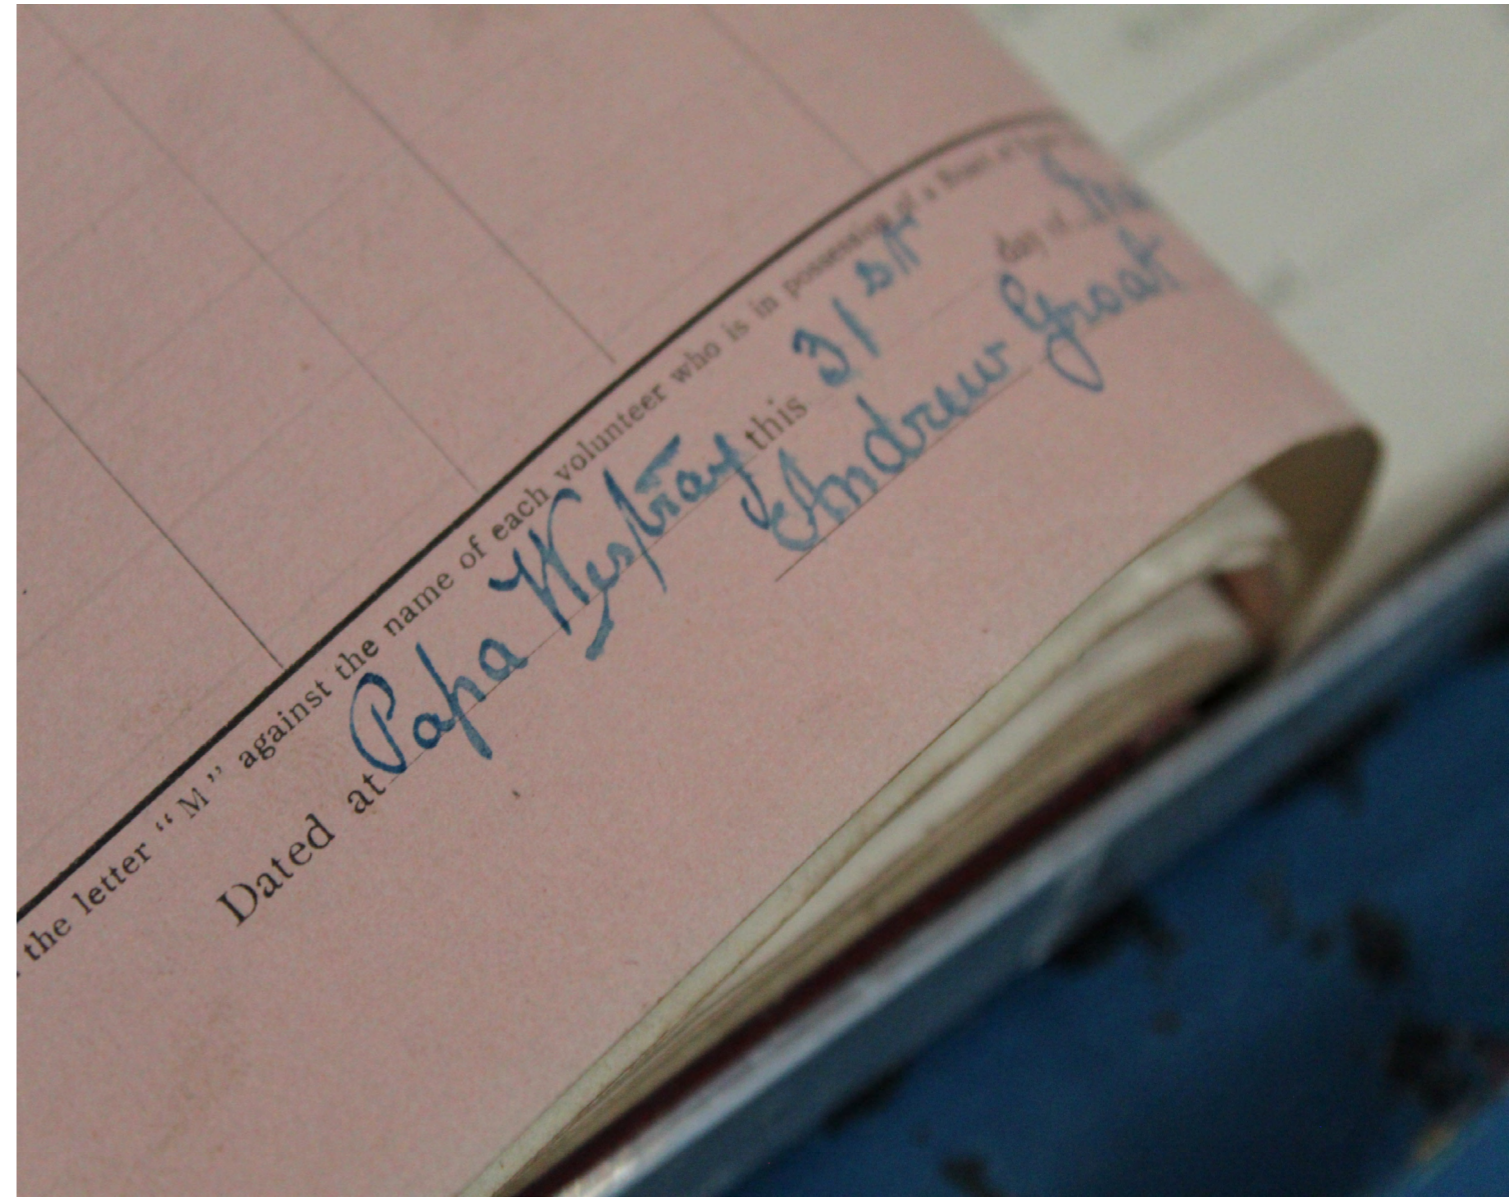 the letter “M” against the name of each volunteer who is in possession of a
Dated at Papa Westray this 31st day of
Andrew Groat